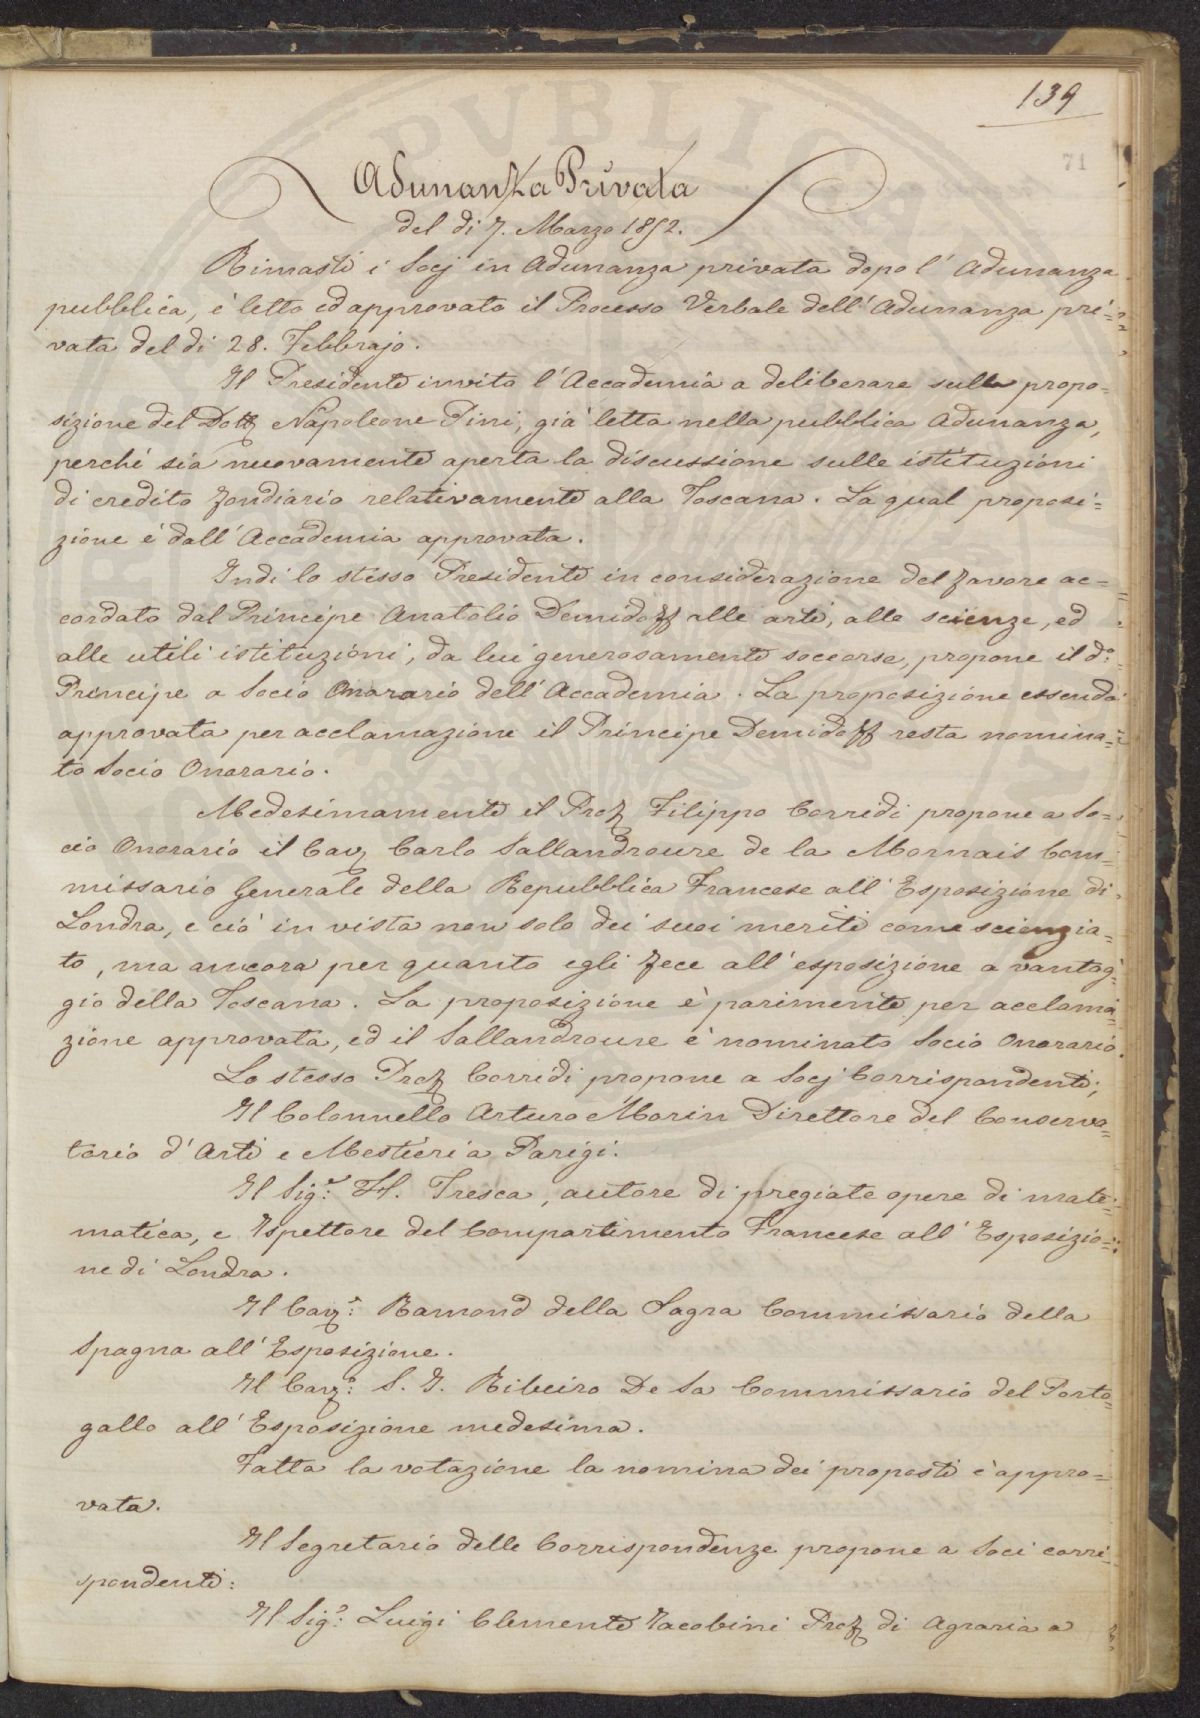 139
71
Adunanza Privata
del di 7. Marzo 1852.
Rimasti i Socj in Adunanza privata dopo l'Adunanza
pubblica, è letto ed approvato il Processo Verbale dell'Adunanza pri=
vata del di 28. Febbrajo.
Il Presidente invita l'Accademia a deliberare sulla propo=
sizione del Dott Napoleone Pini, già letta nella pubblica Adunanza,
perchè sia nuovamente aperta la discussione sulle istituzioni
di credito fondiario relativamente alla Toscana. La qual proposi=
zione è dall'Accademia approvata.
Indi lo stesso Presidente in considerazione del favore ac=
cordato dal Principe Anatolio Demidoff alle arti, alle scienze, ed
alle utili istituzioni, da lui generosamente soccorse, propone il do.
Principe a Socio Onorario dell'Accademia. La proposizione essendo
approvata per acclamazione il Principe Demidoff resta nomina=
to Socio Onorario.
Medesimamente il Prof Filippo Corridi propone a So=
cio Onorario il Cav Carlo Sallandroure de la Mornais Com=
missario Generale della Repubblica Francese all'Esposizione di
Londra, e ciò in vista non solo dei suoi meriti come scienzia=
to, ma ancora per quanto egli fece all'esposizione a vantag=
gio della Toscana. La proposizione è parimente per acclama=
zione approvata, ed il Sallandroure è nominato Socio Onorario.
Lo stesso Prof Corridi propone a Socj Corrispondenti;
Il Colonnello Arturo Morin Direttore del Conserva=
torio d'Arti e Mestieri a Parigi.
Il Sigr. H. Tresca, autore di pregiate opere di mate=
matica, e Ispettore del Compartimento Francese all'Esposizio=
ne di Londra.
Il Cavr. Ramond della Sagra Commissario della
Spagna all'Esposizione.
Il Cavr. S. I. Ribeiro De Sa Commissario del Porto=
gallo all'Esposizione medesima.
Fatta la votazione la nomina dei proposti è appro=
vata.
Il Segretario delle Corrispondenze propone a Soci corri=
spondenti:
Il Sigr. Luigi Clemente Iacobini Prof di Agraria a